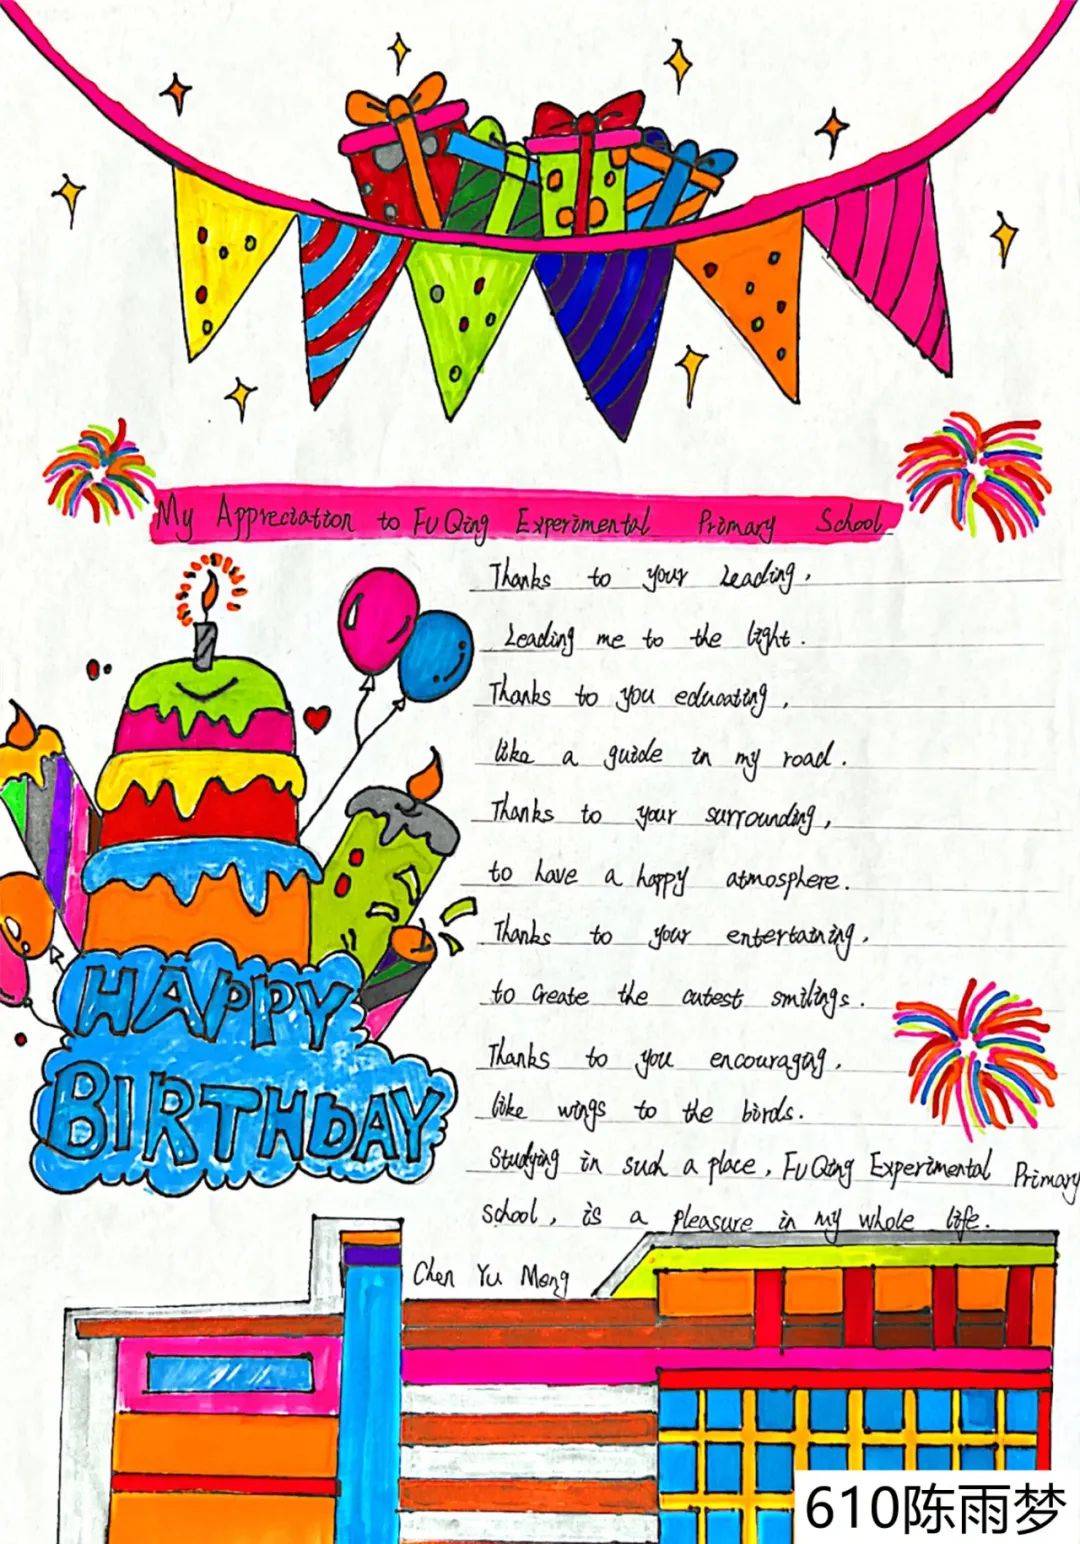 My Appreciation to FuQing Experimental Primary School
Thanks to your leading,
Leading me to the light.
Thanks to you educating,
like a guide in my road.
Thanks to your surrounding,
to have a happy atmosphere.
Thanks to your entertaining,
to create the cutest smilings.
Thanks to you encouraging,
like wings to the birds.
Studying in such a place, FuQing Experimental Primary
School, is a pleasure in my whole life.
Chen Yu Meng
HAPPY
BIRTHbAY
610陈雨梦